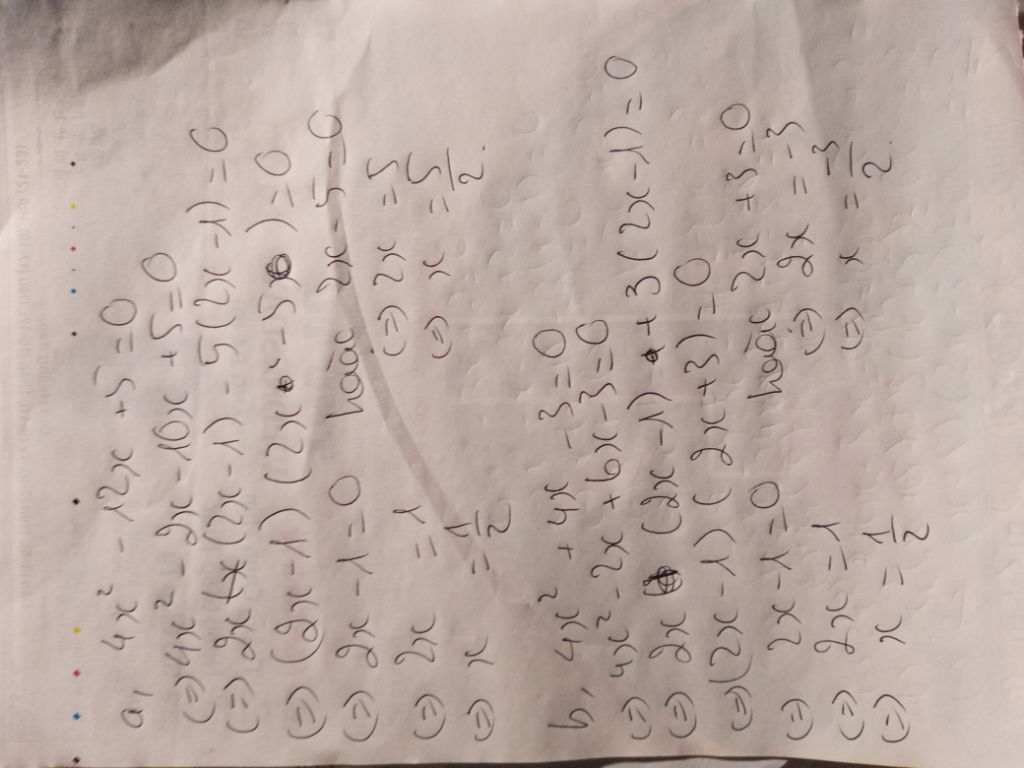 a, 4x² - 12x + 5 = 0
(=) 4x² - 2x - 10x + 5 = 0
(=) 2x (2x - 1) - 5 (2x - 1) = 0
(=) (2x - 1) (2x - 5) = 0
(=) 2x - 1 = 0 hoặc 2x - 5 = 0
(=) 2x = 1 (=) 2x = 5
(=) x = 1/2 (=) x = 5/2.
b, 4x² + 4x - 3 = 0
(=) 4x² - 2x + 6x - 3 = 0
(=) 2x (2x - 1) + 3 (2x - 1) = 0
(=) (2x - 1) (2x + 3) = 0
(=) 2x - 1 = 0 hoặc 2x + 3 = 0
(=) 2x = 1 (=) 2x = -3
(=) x = 1/2 (=) x = -3/2.